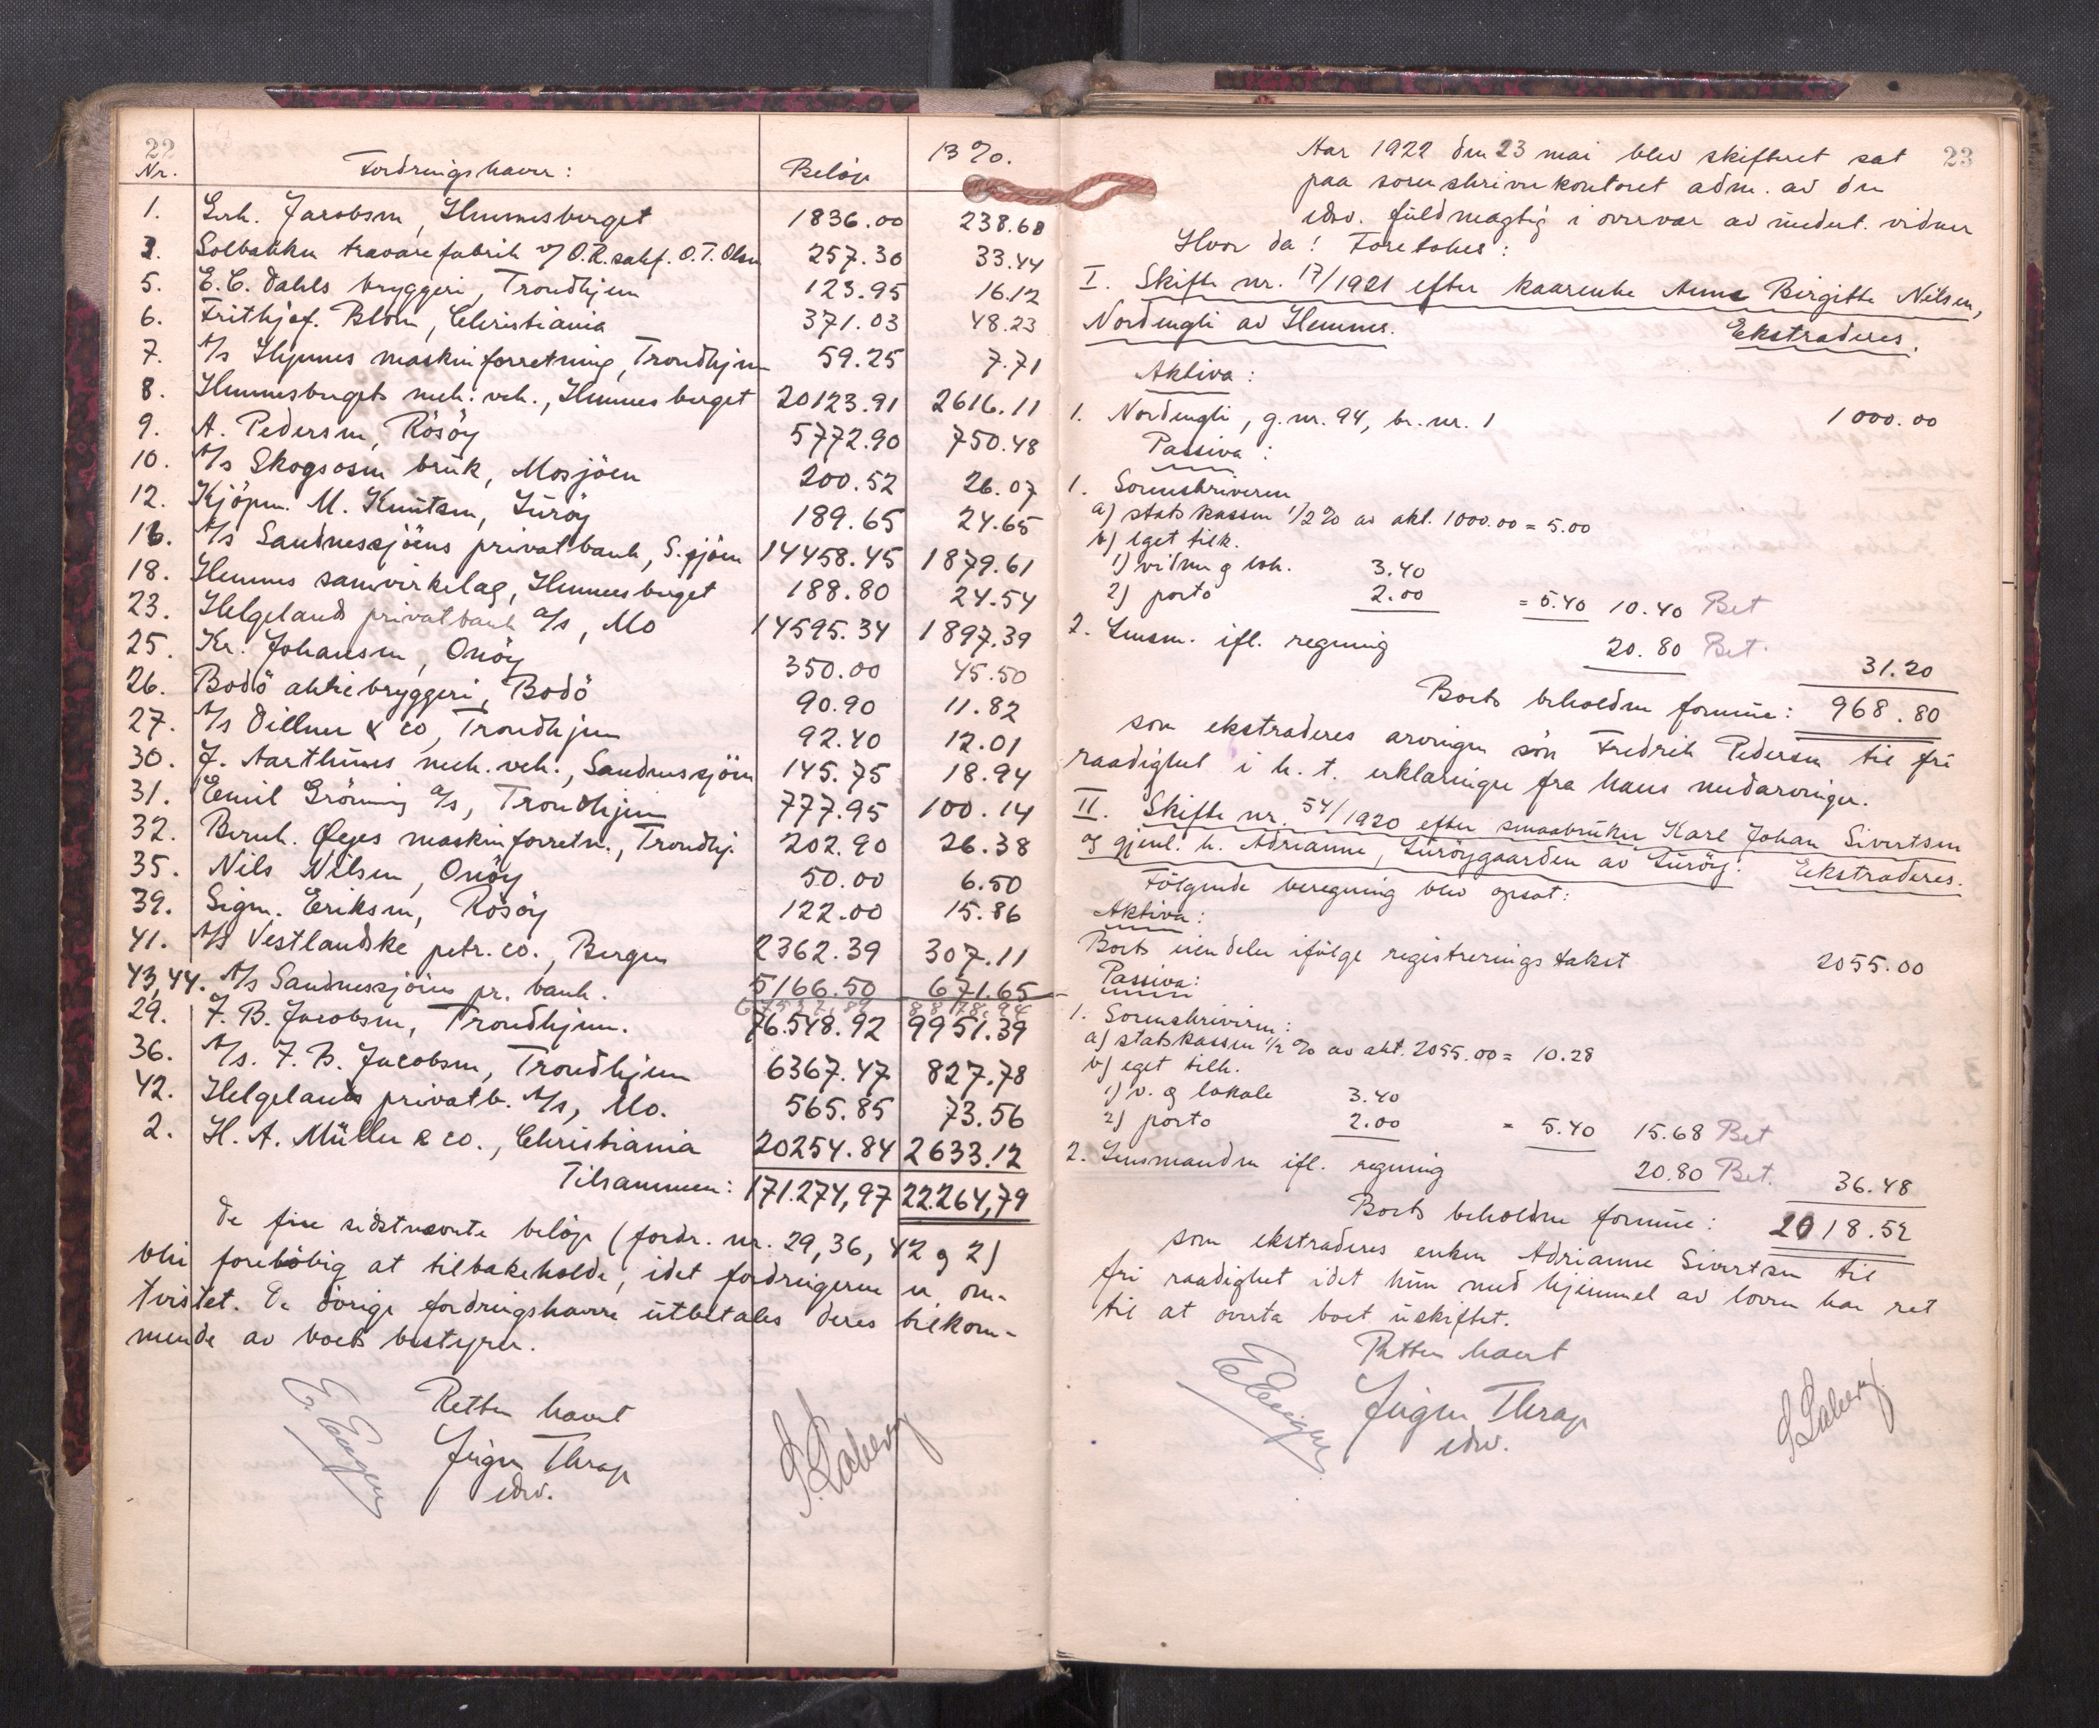 22
Nr. Fordringshaver: Beløp 13 %.
1. Gerh. Jacobsen, Hemnesberget 1836.00 238.68
3. Solbakken trævarefabrik v/ O.R. sakf. O.T. Olsen 257.30 33.44
5. E.C. Dahls bryggeri, Trondhjem 123.95 16.12
6. Frithjof. Blom, Christiania 371.03 48.23
7. A/s Hjemmes maskinforretning, Trondhjem 59.25 7.71
8. Hemnesbergets mek. verk., Hemnesberget 20123.91 2616.11
9. A. Pedersen, Rösöy 5772.90 750.48
10. A/s Skogsosen bruk, Mosjöen 200.52 26.07
12. Kjöpm. M. Knutsen, Luröy 189.65 24.65
16. A/s Sandnessjöens privatbank, S.sjöen 14458.45 1879.61
18. Hemnes samvirkelag, Hemnesberget 188.80 24.54
23. Helgeland privatbank a/s, Mo 14595.34 1897.39
25. Kr. Johansen, Onöy 350.00 45.50
26. Bodö aktiebryggeri, Bodö 90.90 11.82
27. A/s Dillner & co, Trondhjem 92.40 12.01
30. J. Aarthuns mek. verk., Sandnessjöen 145.75 18.94
31. Emil Grönning a/s, Trondhjem 777.95 100.14
32. Bernh. Øyes maskinforretn., Trondhj. 202.90 26.38
35. Nils Nilsen, Onöy 50.00 6.50
39. Sigm. Eriksen, Rösöy 122.00 15.86
41. A/s Vestlandske petr. co., Bergen 2362.39 307.11
43,44. A/s Sandnessjöens pr. bank. 5166.50 671.65
29. F. B. Jacobsen, Trondhjem. 76.548.92 9951.39
36. A/s. F. B. Jacobsen, Trondhjem 6367.47 827.78
42. Helgelands privatb. A/s, Mo. 565.85 73.56
2. H. A. Müller & co., Christiania 20254.84 2633.12
Tilsammen: 171.274,97 22.264,79
De fire sidstnevnte beløp (fordr. nr. 29, 36, 42 og 2)
blir foreløbig at tilbakeholde, idet fordringerne er om-
tvistet. De övrige fordringshavere utbetales deres tilkom-
mende av boets bestyrer.
Retten hævet
Jürgen Thrap
edsv.
23
Aar 1922 den 23 mai blev skifteret sat
paa sorenskriverkontoret adm. av den
edsv. fuldmægtig i overvær av undert. vidner
Hvor da! Foretokes:
I. Skifte nr. 17/1921 efter kaarenke Anne Birgitte Nilsen,
Nordengli av Hemnes. Ekstraderes.
Aktiva:
1. Nordengli, g.nr. 94, br. nr. 1 1000.00
Passiva:
1. Sorenskriveren
a) statskassen 1/2 % av akt. 1000.00 = 5.00
b) eget tilk.
1) vidner og lok. 3.40
2) porto 2.00 = 5.40 10.40 Bet
2. Lensm. ifl. regning 20.80 Bet. 31.20
Boets beholdne formue: 968.80
som ekstraderes arvingen sön Fredrik Pedersen til fri
raadighet i h. t. erklæringer fra hans medarvinger.
II. Skifte nr. 54/1920 efter smaabruker Karl Johan Sivertsen
og gjenl. h. Adrianne, Luröygaarden av Luröy. Ekstraderes.
Følgende beregning blev opsat:
Aktiva:
Boets eiendeler ifølge registreringstakst 2055.00
Passiva:
1. Sorenskriveren:
a) statskassen 1/2 % av akt. 2055.00 = 10.28
b) eget tilk.
1) v. og lokale 3.40
2) porto 2.00 = 5.40 15.68 Bet
2. Lensmanden ifl. regning 20.80 Bet. 36.48
Boets beholdne formue: 2018.52
som ekstraderes enken Adrianne Sivertsen til
fri raadighet idet hun med hjemmel av loven har ret
til at overta boet uskiftet.
Retten hævet
Jürgen Thrap
edsv.